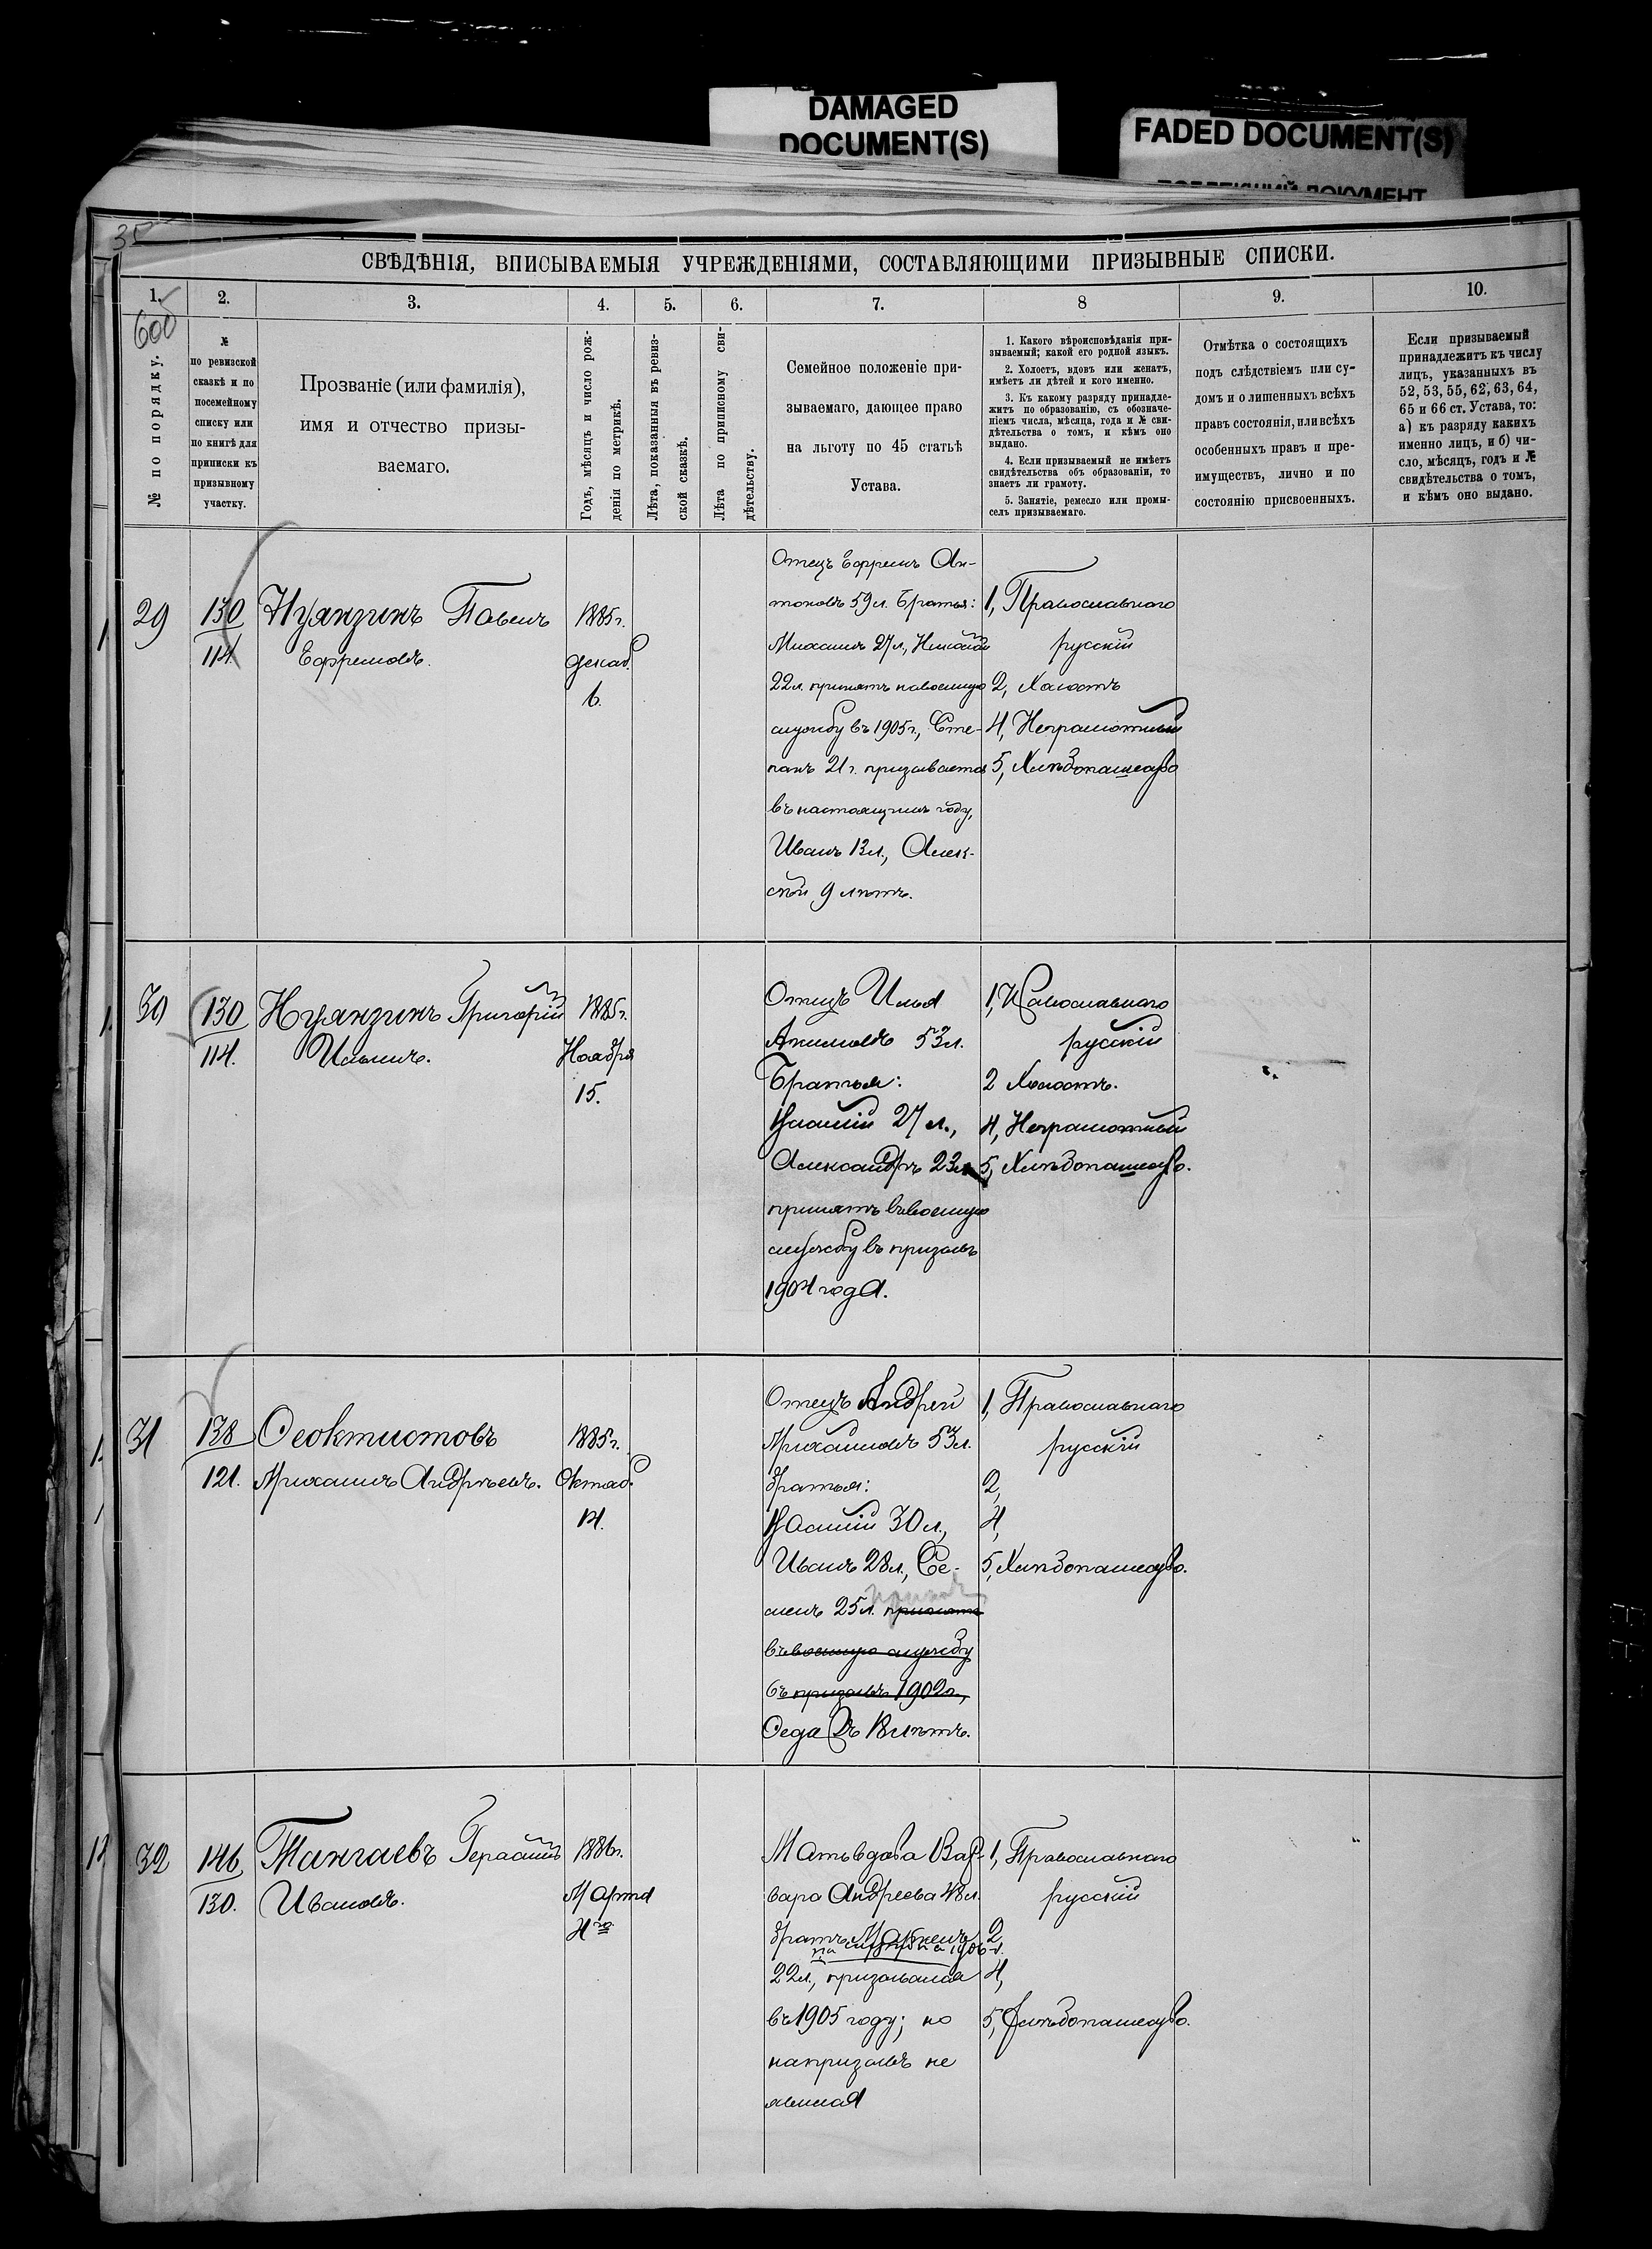 DAMAGED
DOCUMENT(S)
FADED DOCUMENT(S)
35
СВѢДѢНІЯ, ВПИСЫВАЕМЫЯ УЧРЕЖДЕНІЯМИ, СОСТАВЛЯЮЩИМИ ПРИЗЫВНЫЕ СПИСКИ.
1. 2. 3. 4. 5. 6. 7. 8 9. 10.
600
№ по порядку.
№
по ревизской
сказкѣ и по
посемейному
списку или
по книгѣ для
приписки къ
призывному
участку.
Прозваніе (или фамилія),
имя и отчество призы-
ваемаго.
Годъ, мѣсяцъ и число рож-
денія по метрикѣ.
Лѣта, показанныя въ ревиз-
ской сказкѣ.
Лѣта по приписному сви-
дѣтельству.
Семейное положеніе при-
зываемаго, дающее право
на льготу по 45 статьѣ
Устава.
1. Какого вѣроисповѣданія при-
зываемый; какой его родной языкъ.
2. Холостъ, вдовъ или женатъ,
имѣетъ ли дѣтей и кого именно.
3. Къ какому разряду принадле-
житъ по образованію, съ обозначе-
ніемъ числа, мѣсяца, года и № сви-
дѣтельства о томъ, и кѣмъ оно
выдано.
4. Если призываемый не имѣетъ
свидѣтельства объ образованіи, то
знаетъ ли грамоту.
5. Занятіе, ремесло или промы-
селъ призываемаго.
Отмѣтка о состоящихъ
подъ слѣдствіемъ или су-
домъ и о лишенныхъ всѣхъ
правъ состоянія, или всѣхъ
особенныхъ правъ и пре-
имуществъ, лично и по
состоянію присвоенныхъ.
Если призываемый
принадлежитъ къ числу
лицъ, указанныхъ въ
52, 53, 55, 62, 63, 64,
65 и 66 ст. Устава, то:
а) къ разряду какихъ
именно лицъ, и б) чи-
сло, мѣсяцъ, годъ и №
свидѣтельства о томъ,
и кѣмъ оно выдано.
29
130
114.
Нуянзинъ Павелъ
Ефремовъ.
1885г.
декаб.
6.
Отецъ Ефремъ Ан-
тоновъ 59л. Братья:
Михаилъ 27л, Николай
22л. принятъ навоенную
службу въ 1905г, Сте-
панъ 21г. призывается
въ настоящемъ году,
Иванъ 13л., Алек-
сѣй 9 лѣтъ.
1, Православнаго
русскій
2, Холостъ
4, Неграмотный
5, Хлѣбопашество
30
130
114.
Нуянзинъ Григорій
Ильинъ.
1885г.
Ноября
15.
Отецъ Илья
Акимовъ 53л.
Братья:
Василій 27 л.,
Александръ 23л
принятъ въвоенную
службу въ призывъ
1904 года.
1, Православнаго
русскій
2 Холостъ.
4, Неграмотный
5, Хлѣбопашество.
31
138
121.
Феоктистовъ
Михаилъ Андрѣевъ.
1885г.
Октяб.
14.
Отецъ Андрей
Михайловъ 53л.
братья:
Василій 30л,
Иванъ 28л, Се-
менъ 25л. принятъ
въвоенную службу
въ призывъ 1902г,
Федоръ 18 лѣтъ.
1, Православнаго
русскій
2,
4,
5, Хлѣбопашество.
32
146
130.
Тангаевъ Герасимъ
Ивановъ.
1886г.
Марта
4го
Мать вдова Вар-
вара Андреева 48л.
братъ
22л., призывался
въ 1905 году; но
напризывъ не
явился
1, Православнаго
русскій
2
4,
5, Хлѣбопашество.